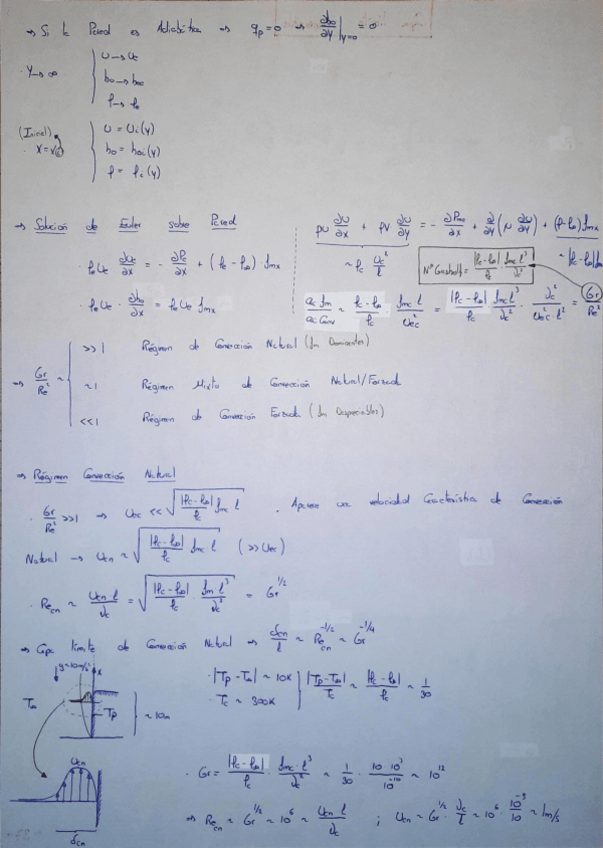 → Si la Pared es Adiabática → q_p = 0 → ∂h₀/∂y|_{y=0} = 0
· y → ∞ { u → u_e
h₀ → h₀e
ρ → ρ_e
(Inicial) · x = x₀ { u = u_i(y)
h₀ = h₀i(y)
ρ = ρ_i(y)
→ Solución de Euler sobre Pared
· ρ_e u_e ∂u_e/∂x = - ∂P_e/∂x + (ρ_e - ρ_∞) f_mx
· ρ_e u_e · ∂h₀/∂x = ρ_e u_e f_mx
ρu ∂u/∂x + ρv ∂u/∂y = - ∂P_me/∂x + ∂/∂y (μ ∂u/∂y) + (ρ-ρ_∞) f_mx
~ ρ_c u_c²/l
~ |ρ_c-ρ_∞| f_m
Nº Grashof = |ρ_c-ρ_∞|/ρ_c · f_mc l³/ν_c²
~ ρ_c-ρ_∞/ρ_c · f_mc l/u_ec² = |ρ_c-ρ_∞|/ρ_c · f_mc l³/ν_c² · ν_c²/u_ec² · l² = Gr/Re²
→ Gr/Re² ~ { >> 1 Régimen de Convección Natural (fm Dominantes)
~ 1 Régimen Mixto de Convección Natural/Forzada
<< 1 Régimen de Convección Forzada (fm Despreciables)
→ Régimen Convección Natural
· Gr/Re² >> 1 → u_ec << √(|ρ_c-ρ_∞|/ρ_c f_mc l) . Aparece una velocidad Característica de Convección
Natural → u_cn ~ √(|ρ_c-ρ_∞|/ρ_c f_mc l) (>> u_ec)
· Re_cn ~ u_cn l/ν_c = √(|ρ_c-ρ_∞|/ρ_c · f_m l³/ν_c²) = Gr^{1/2}
→ Capa límite de Convección Natural → δ_cn/l ~ Re_cn^{-1/2} ~ Gr^{-1/4}
x
T_∞
T_p
} ~ 10m
· |T_p - T_∞| ~ 10K
· T_c ~ 300K
} |T_p-T_∞|/T_c ~ |ρ_c-ρ_∞|/ρ_c ~ 1/30
u_cn
δ_cn
· Gr = |ρ_c-ρ_∞|/ρ_c · f_mc · l³/ν_c² ~ 1/30 · 10 · 10³/10^{-10} ~ 10^{12}
→ Re_cn ~ Gr^{1/2} ~ 10⁶ ~ u_cn l/ν_c ; u_cn ~ Gr^{1/2} · ν_c/l ~ 10⁶ · 10^{-5}/10 ~ 1m/s